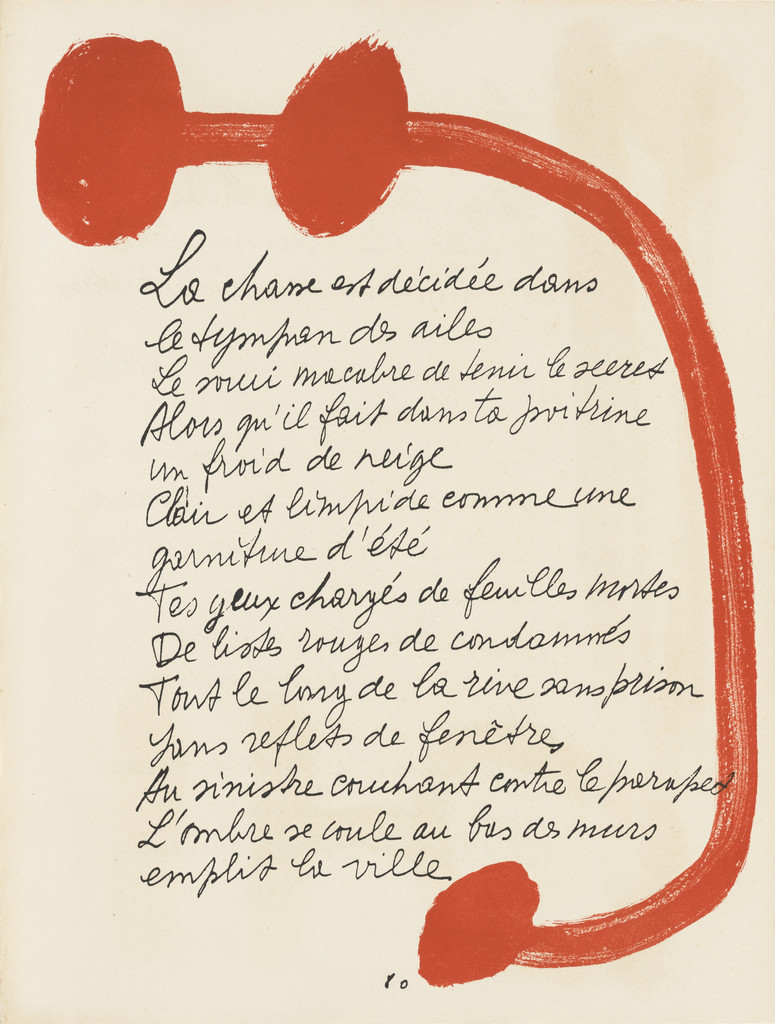 La chasse est décidée dans
le tympan des ailes
Le souci macabre de tenir le secret
Alors qu'il fait dans ta poitrine
un froid de neige
Clair et limpide comme une
garniture d'été
Tes yeux chargés de feuilles mortes
De listes rouges de condamnés
Tout le long de la rive sans prison
Sans reflets de fenêtres
Au sinistre couchant contre le parapet
L'ombre se coule au bas des murs
emplit la ville
80